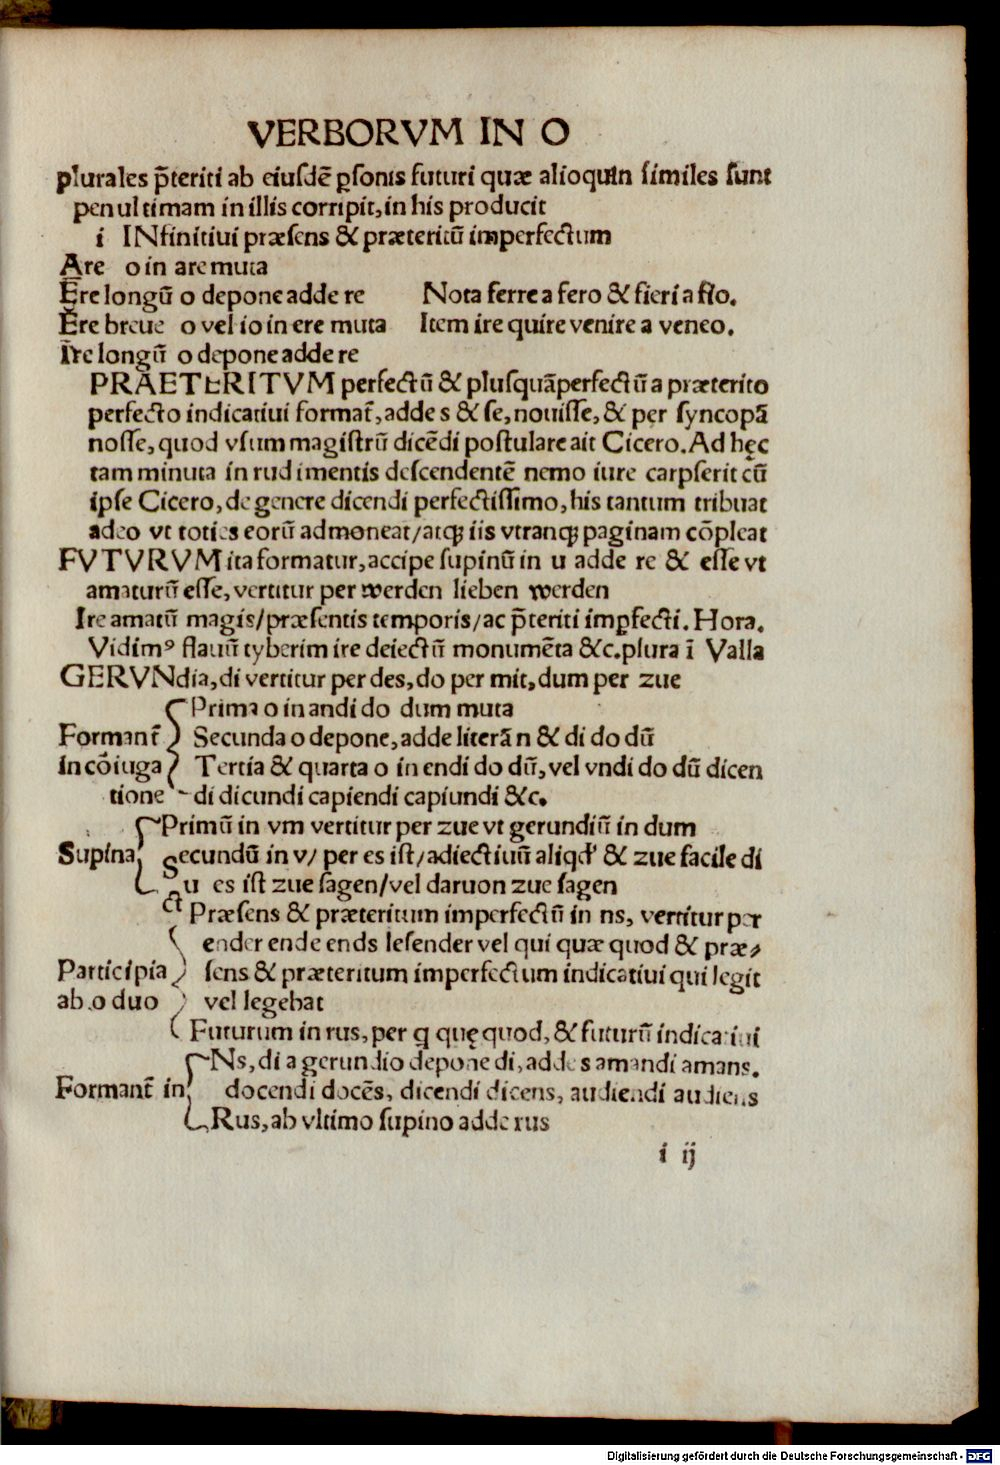 VERBORVM IN O
plurales p̄teriti ab eiusdē ꝑsonis futuri quæ alioquin similes sunt
penultimam in illis corripit, in his producit
i INfinitiui præsens & præteritū imperfectum
Are o in are muta
Ere longū o depone adde re Nota ferre a fero & fieri a fio.
Ere breue o vel io in ere muta Item ire quire venire a veneo.
Ire longū o depone adde re
PRAETERITVM perfectū & plusquāperfectū a præterito
perfecto indicatiui format̄, adde s & se, nouisse, & per syncopā
nosse, quod vsum magistrū dicēdi postulare ait Cicero. Ad hęc
tam minuta in rudimentis descendentē nemo iure carpserit cū
ipse Cicero, de genere dicendi perfectissimo, his tantum tribuat
adeo vt toties eorū admoneat/atqꝫ iis vtranqꝫ paginam cōpleat
FVTVRVM ita formatur, accipe supinū in u adde re & esse vt
amaturū esse, vertitur per werden lieben werden
Ire amatū magis/præsentis temporis/ac p̄teriti imꝑfecti. Hora.
Vidimꝰ flauū tyberim ire deiectū monumēta &c. plura ī Valla
GERVNdia, di vertitur per des, do per mit, dum per zue
Prima o in andi do dum muta
Formant̄ Secunda o depone, adde literā n & di do dū
in cōiuga Tertia & quarta o in endi do dū, vel vndi do dū dicen
tione di dicundi capiendi capiundi &c.
Primū in vm vertitur per zue vt gerundiū in dum
Supina secundū in v/ per es ist/adiectiuū aliqd' & zue facile di
ctu es ist zue sagen/vel daruon zue sagen
Præsens & præteritum imperfectū in ns, vertitur per
ender ende ends lesender vel qui quæ quod & præ⸗
Participia sens & præteritum imperfectum indicatiui qui legit
ab o duo vel legebat
Futurum in rus, per q quę quod, & futurū indicatiui
Ns, di a gerundio depone di, adde s amandi amans.
Formant̄ in docendi docēs, dicendi dicens, audiendi audiens
Rus, ab vltimo supino adde rus
i ij
Digitalisierung gefördert durch die Deutsche Forschungsgemeinschaft - DFG